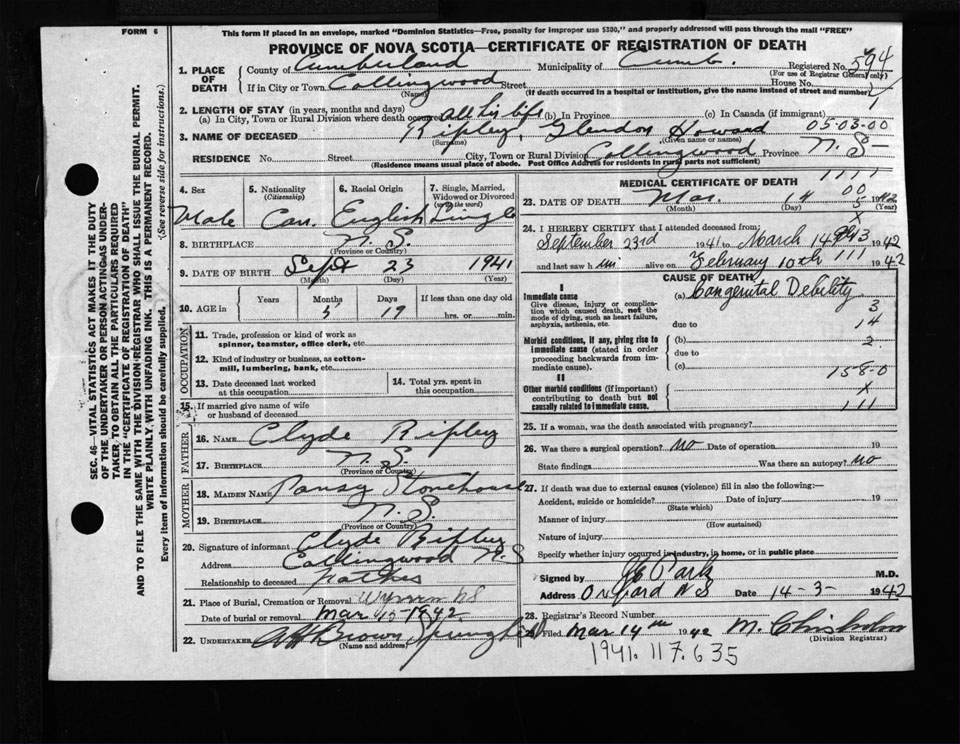 This form if placed in an envelope, marked "Dominion Statistics—Free, penalty for improper use $300," and properly addressed will pass through the mail "FREE"
FORM 6
PROVINCE OF NOVA SCOTIA—CERTIFICATE OF REGISTRATION OF DEATH
1. PLACE OF DEATH
County of Cumberland Municipality of Cumb. Registered No. 594
(For use of Registrar General only)
If in City or Town Collingwood Street House No.
(Name) (If death occurred in a hospital or institution, give the name instead of street and number)
1
2. LENGTH OF STAY (in years, months and days)
(a) In City, Town or Rural Division where death occurred all his life (b) In Province (c) In Canada (if immigrant)
3. NAME OF DECEASED Ripley, Glendon Howard 05-03-00
(Surname) (Given name or names)
RESIDENCE No. Street City, Town or Rural Division Collingwood Province N. S-
(Residence means usual place of abode. Post Office Address for residents in rural parts not sufficient)
4. Sex
Male
5. Nationality
(Citizenship)
Can.
6. Racial Origin
English
7. Single, Married, Widowed or Divorced
(write the word)
Single
8. BIRTHPLACE N. S.
(Province or Country)
9. DATE OF BIRTH Sept 23 1941
(Month) (Day) (Year)
10. AGE in Years Months Days If less than one day old
5 19 hrs. or min.
OCCUPATION
11. Trade, profession or kind of work as spinner, teamster, office clerk, etc.
12. Kind of industry or business, as cotton-mill, lumbering, bank, etc.
13. Date deceased last worked at this occupation
14. Total yrs. spent in this occupation
15. If married give name of wife or husband of deceased
FATHER
16. NAME Clyde Ripley
17. BIRTHPLACE N. S.
(Province or Country)
MOTHER
18. MAIDEN NAME Pansy Stonehouse
19. BIRTHPLACE N. S.
(Province or Country)
20. Signature of informant Clyde Ripley
Address Collingwood N.S
Relationship to deceased Father
21. Place of Burial, Cremation or Removal Wyvern NS
Date of burial or removal Mar 15-1942
22. UNDERTAKER Brown Springhill
(Name and address)
MEDICAL CERTIFICATE OF DEATH
1111
00
23. DATE OF DEATH Mar. 14 1942
(Month) (Day) (Year)
X
24. I HEREBY CERTIFY that I attended deceased from:
September 23rd 1941 to March 14 1942
and last saw him alive on February 10th 111 1942
CAUSE OF DEATH
I
Immediate cause
Give disease, injury or complication which caused death, not the mode of dying, such as heart failure, asphyxia, asthenia, etc.
(a) Congenital Debility
3
due to 14
Morbid conditions, if any, giving rise to immediate cause (stated in order proceeding backwards from immediate cause).
(b) 2
due to
(c) 15-8-0
II
Other morbid conditions (if important) contributing to death but not causally related to immediate cause.
X
111
25. If a woman, was the death associated with pregnancy?
26. Was there a surgical operation? No Date of operation 19
State findings Was there an autopsy? No
27. If death was due to external causes (violence) fill in also the following:—
Accident, suicide or homicide? Date of injury 19
(State which)
Manner of injury
(How sustained)
Nature of injury
Specify whether injury occurred in industry, in home, or in public place
Signed by Park M.D.
Address Oxford N S Date 14-3- 1942
28. Registrar's Record Number
29. Filed Mar 14th 1942 M. Chisholm
(Division Registrar)
1941.117.635
SEC. 46—VITAL STATISTICS ACT MAKES IT THE DUTY
OF THE UNDERTAKER OR PERSON ACTING AS UNDER-
TAKER, TO OBTAIN ALL THE PARTICULARS REQUIRED
IN THE "CERTIFICATE OF REGISTRATION OF DEATH"
AND TO FILE THE SAME WITH THE DIVISION REGISTRAR WHO SHALL ISSUE THE BURIAL PERMIT.
WRITE PLAINLY, WITH UNFADING INK. THIS IS A PERMANENT RECORD.
Every item of information should be carefully supplied. (See reverse side for instructions.)